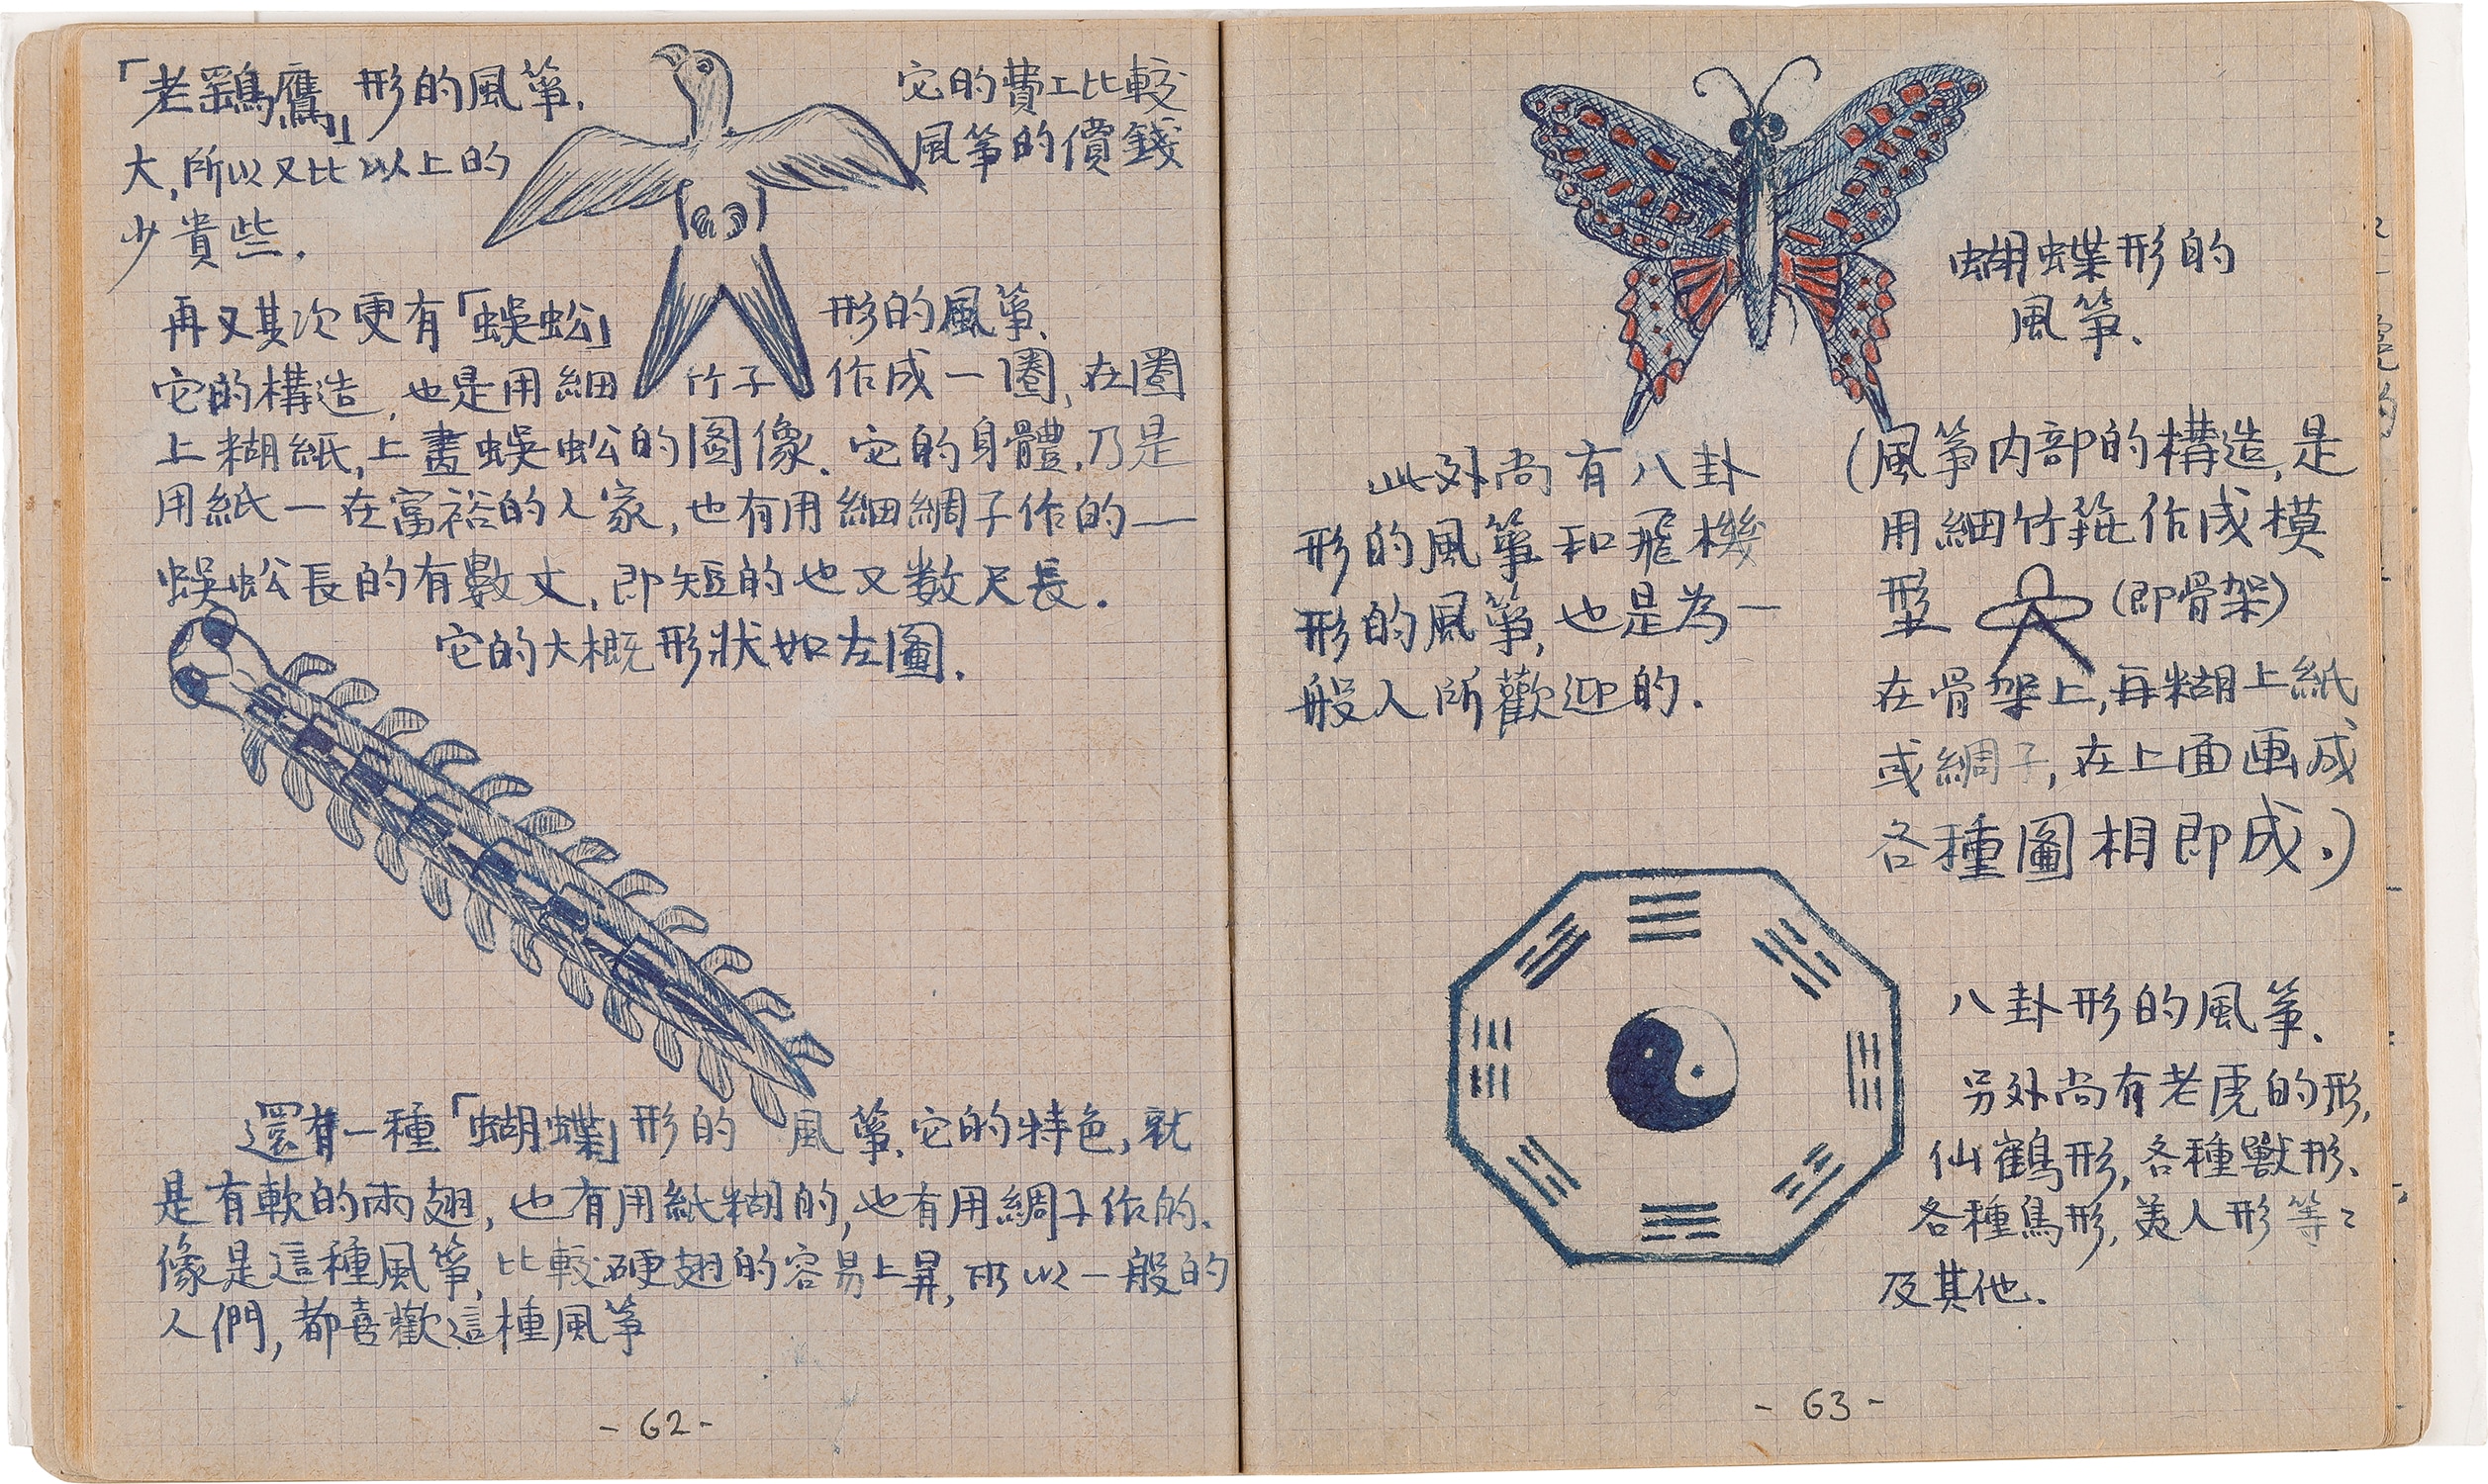 「老鷂鷹」形的風箏. 它的費工比較
大,所以又比以上的風箏的價錢
少貴些.
再又其次更有「蜈蚣」形的風箏.
它的構造,也是用細竹子作成一圈,在圈
上糊紙,上畫蜈蚣的圖像.它的身體,乃是
用紙—在富裕的人家,也有用細綢子作的—
蜈蚣長的有數丈,即短的也又数尺長.
它的大概形狀如左圖.
還有一種「蝴蝶」形的風箏.它的特色,就
是有軟的兩翅,也有用紙糊的,也有用綢子作的.
像是這種風箏,比較硬翅的容易上昇,所以一般的
人們,都喜歡這種風箏
-62-
蝴蝶形的
風箏.
此外尚有八卦
形的風箏和飛機
形的風箏,也是為一
般人所歡迎的.
(風箏内部的構造,是
用細竹箍作成模
型 (即骨架)
在骨架上,再糊上紙
或綢子,在上面画成
各種圖相即成.)
八卦形的風箏.
另外尚有老虎的形,
仙鶴形,各種獸形、
各種鳥形,美人形等々
及其他.
-63-